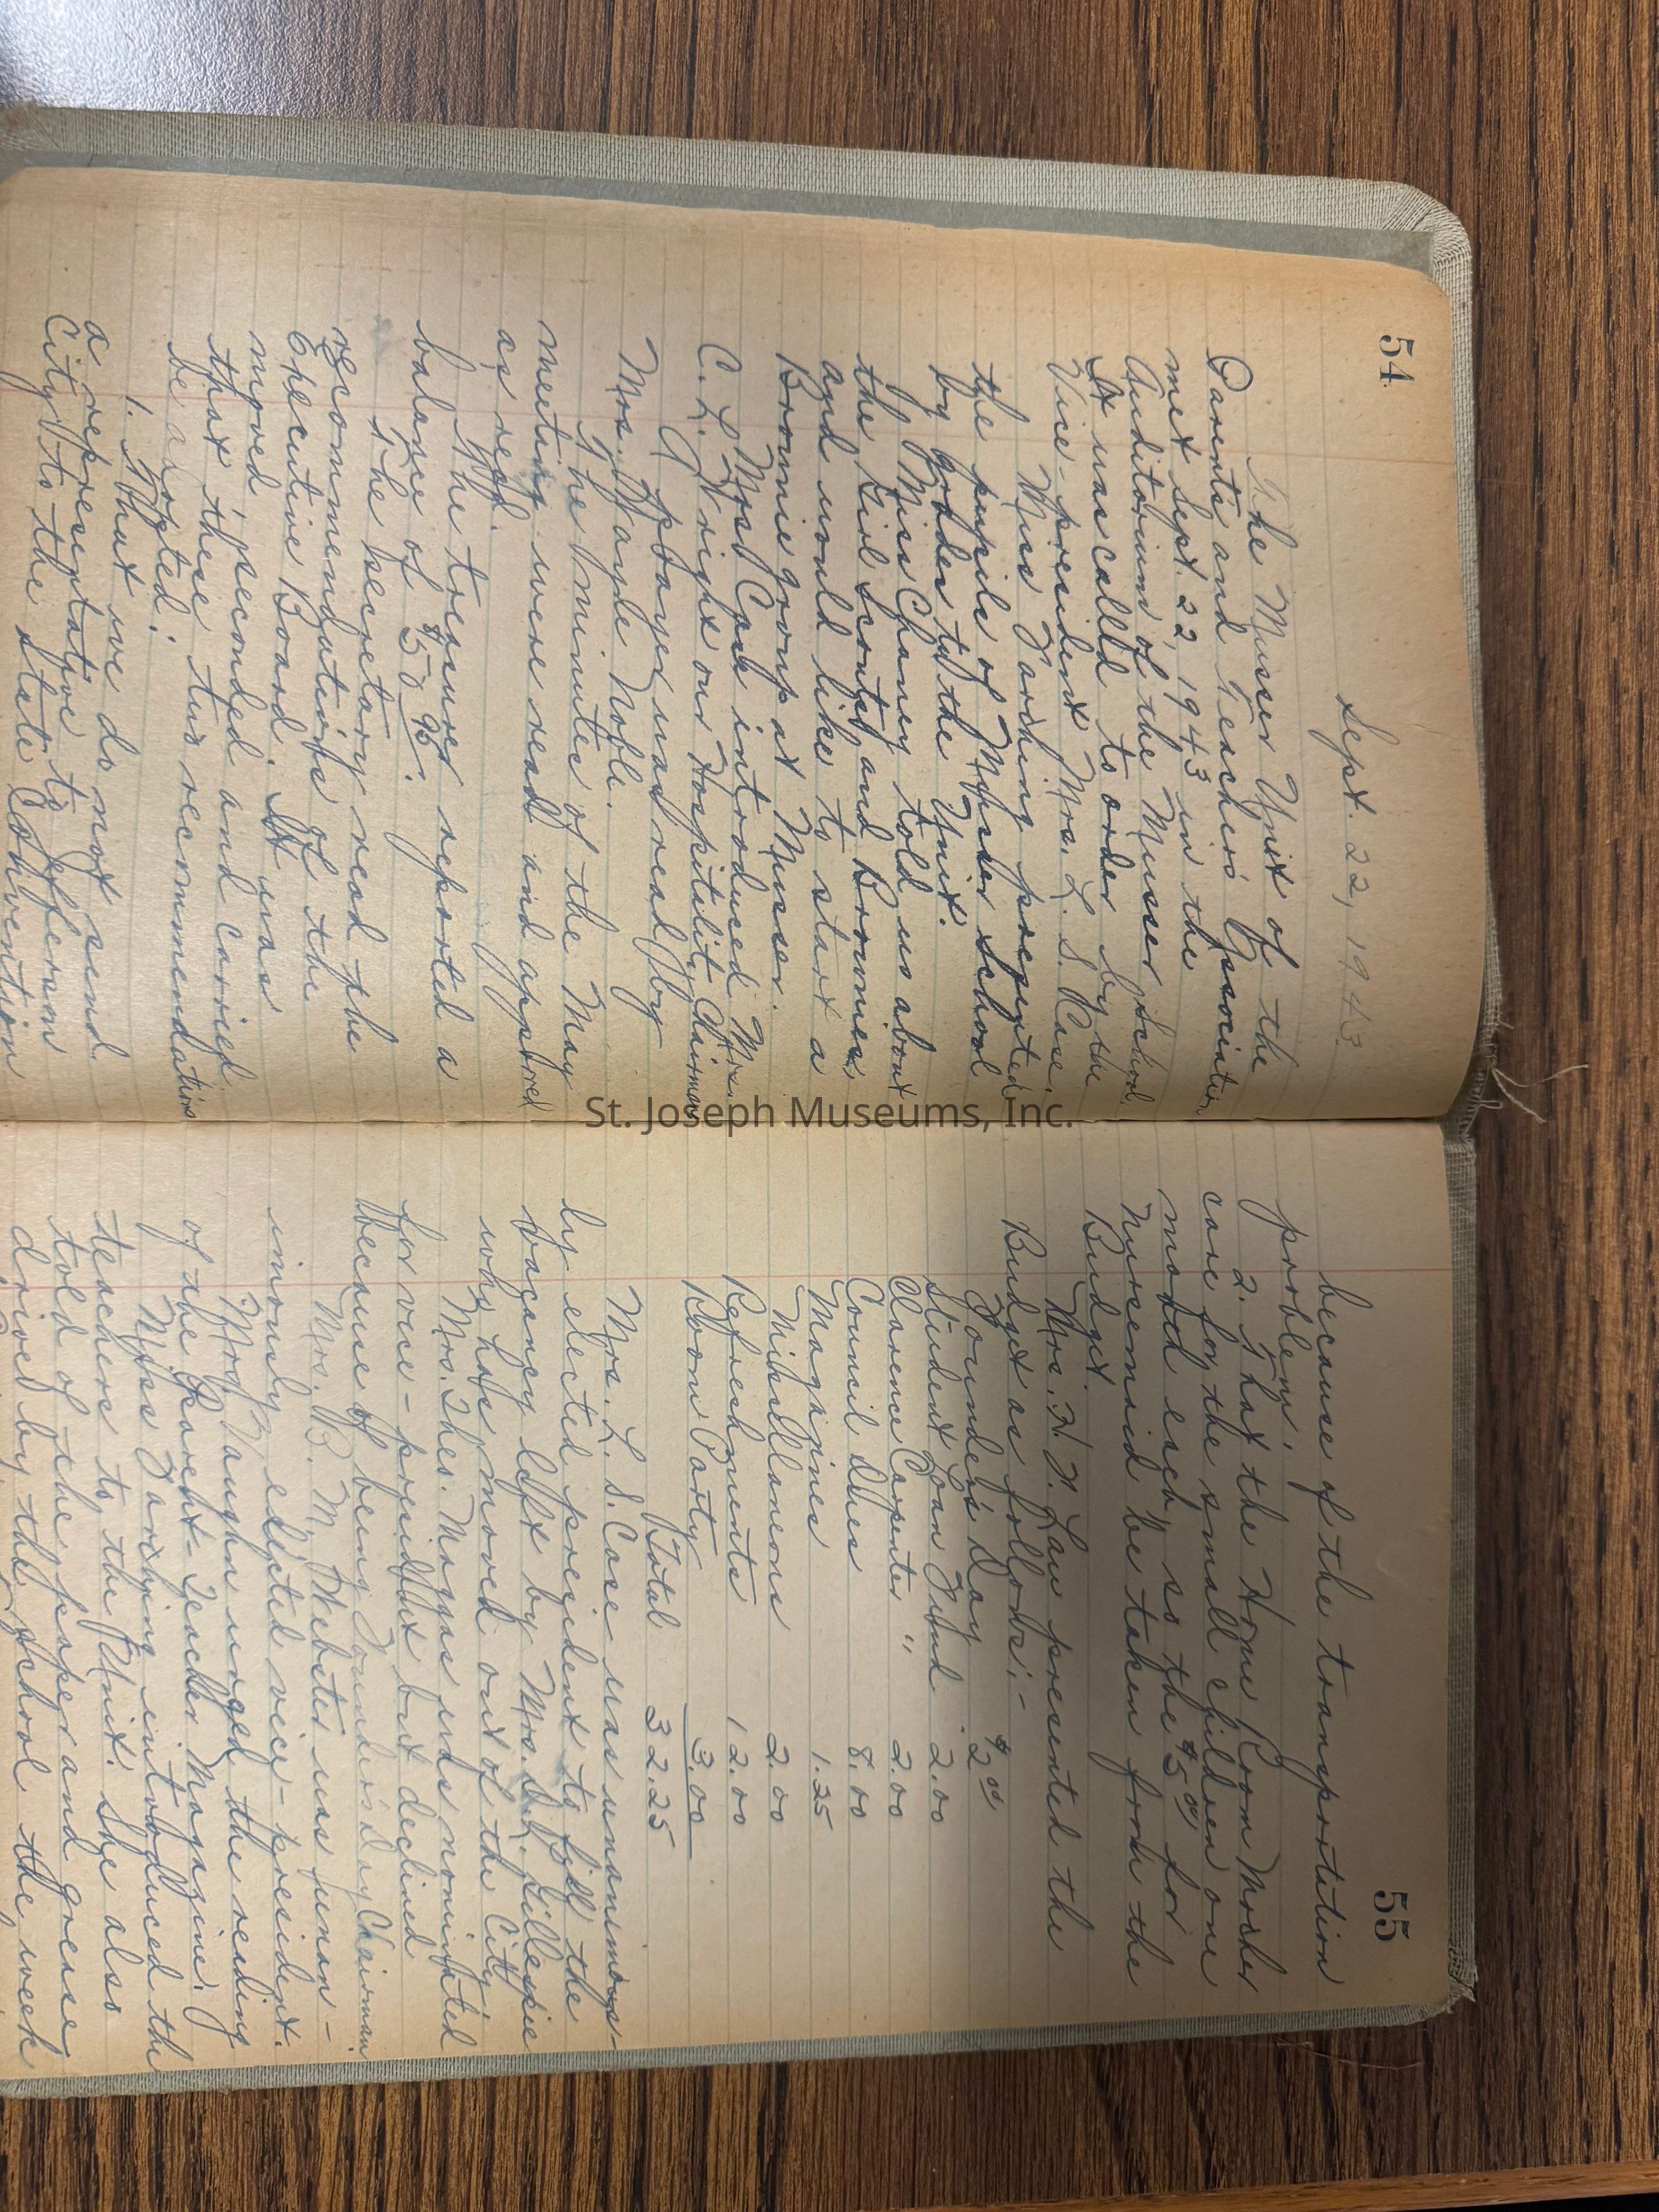 54
Sept. 22, 1943
The Musser Unit of the
Parents and Teachers Association
met Sept. 22, 1943 in the
Auditorium of the Musser School
It was called to order by the
Vice-president Mrs. L. S. Case.
Miss Farthing presented
the pupils of Musser School
by grades to the Unit.
Miss Chaney told us about
the Girl Scouts, and Brownies,
and would like to start a
Brownie group at Musser.
Mrs Case introduced Mrs.
C. L. Wright our Hospitality Chairman
A prayer was read by
Mrs. Wayde Noble.
The minutes of the May
meeting were read and approved
as read.
The treasurer reported a
balance of $50 96.
The secretary read the
recommendations of the
Executive Board. It was
moved, seconded and carried
that these two recommendations
be adopted:
1. That we do not send
a representative to Jefferson
City to the State Convention
55
because of the transportation
problem.
2. That the Home Room Mother
care for the small children one
month each, so the $5 00 for
nursemaid be taken from the
Budget.
Mrs. F. F. Law presented the
Budget as follows:-
Founder's Day $2 00
Student Loan Fund 2.00
Clarence Carpenter " 2.00
Council dues 8.00
Magazines 1.25
Misellaneous 2.00
Refreshments 12.00
Room Party 3.00
Total 32.25
Mrs. L. S. Case was unanimous-
ly elected president to fill the
vacancy left by Mrs. D. L. Gillespie
who has moved out of the City.
Mrs. Thes. Maggs was nominated
for vice-president but declined
because of being Founder's Day Chairman.
Mrs. B. M. Webster was unan-
imously elected vice-president.
Mrs. Vaughn urged the reading
of the Parent-Teacher Magazine.
Miss Farthing introduced the
teachers to the Unit. She also
told of the paper and grease
drived by the school the week
St. Joseph Museums, Inc.